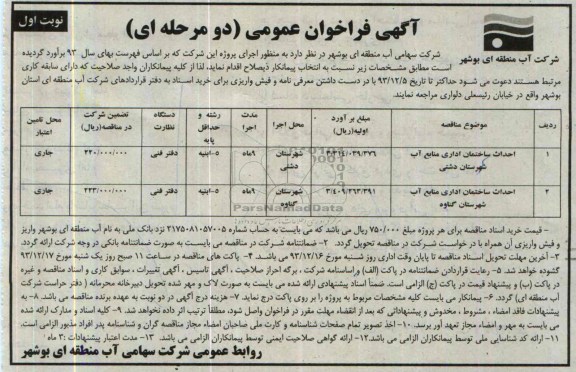 نوبت اول
آگهی فراخوان عمومی (دو مرحله ای)
شرکت آب منطقه ای بوشهر
شرکت سهامی آب منطقه ای بوشهر در نظر دارد به منظور اجرای پروژه این شرکت که بر اساس فهرست بهای سال ۹۳ برآورد گردیده
است مطابق مشخصات زیر نسبت به انتخاب پیمانکار ذیصلاح اقدام نماید، لذا از کلیه پیمانکاران واجد صلاحیت که دارای سابقه کاری
مرتبط هستند دعوت می شود حداکثر تا تاریخ ۹۳/۱۲/۵ با در دست داشتن معرفی نامه و فیش واریزی برای خرید اسناد به دفتر قراردادهای شرکت آب منطقه ای استان
بوشهر واقع در خیابان رئیسعلی دلواری مراجعه نمایند.
ردیف موضوع مناقصه مبلغ بر آورد اولیه(ریال) محل اجرا مدت اجرا رشته و حداقل پایه دستگاه نظارت تضمین شرکت در مناقصه(ریال) محل تامین اعتبار
۱ احداث ساختمان اداری منابع آب شهرستان دشتی ۰۳۹/۳۷۹ شهرستان دشتی ۹ماه ۵-ابنیه دفتر فنی ۲۲۰/۰۰۰/۰۰۰ جاری
۲ احداث ساختمان اداری منابع آب شهرستان گناوه ۳/۴۰۹/۲۹۳/۳۹۱ شهرستان گناوه ۹ماه ۵-ابنیه دفتر فنی ۲۲۳/۰۰۰/۰۰۰ جاری
ParsNamadData
- قیمت خرید اسناد مناقصه برای هر پروژه مبلغ ۷۵۰/۰۰۰ ریال می باشد که می بایست به حساب شماره ۲۱۷۵۰۸۱۰۵۷۰۰۵ نزد بانک ملی به نام آب منطقه ای بوشهر واریز
و فیش واریزی آن همراه با در خواست شرکت در مناقصه تحویل گردد. ۲- ضمانتنامه شرکت در مناقصه می بایست به صورت ضمانتنامه بانکی در وجه شرکت ارائه گردد.
۳- آخرین مهلت تحویل اسناد مناقصه تا پایان وقت اداری روز شنبه مورخ ۹۳/۱۲/۱۶ می باشد. ۴- پاکت های مناقصه در ساعت ۱۱ صبح روز یک شنبه مورخ ۹۳/۱۲/۱۷
گشوده خواهد شد. ۵- رعایت قراردادن ضمانتنامه در پاکت (الف) و اساسنامه شرکت، برگه احراز صلاحیت، آگهی تاسیس، آگهی تغییرات، سوابق کاری و اسناد مناقصه و غیره
در پاکت (ب) و پیشنهاد قیمت در پاکت (ج) الزامی است. ضمناً اسناد پیشنهادی ارائه شده می بایست به صورت لاک و مهر شده تحویل دبیرخانه محرمانه (دفتر حراست شرکت
آب منطقه ای) گردد. ۶- پیمانکار می بایست کلیه مشخصات مربوط به پروژه را بر روی پاکت درج نماید. ۷- هزینه درج آگهی در دو نوبت به عهده برنده مناقصه می باشد. ۸- به
پیشنهادات فاقد امضاء، مشروط، مخدوش و پیشنهاداتی که بعد از انقضاء مهلت مقرر در فراخوان واصل شود، مطلقاً ترتیب اثر داده نخواهد شد. ۹- کلیه اسناد و مدارک ارائه شده
می بایست به مهر و امضاء مجاز تعهد آور برسد. ۱۰- اخذ تصویر تمام صفحات شناسنامه و کارت ملی صاحبان امضاء مجاز مناقصه گران و شناسنامه پدر افراد مذبور الزامی است.
۱۱- ارائه کد شناسایی ملی توسط پیمانکاران الزامی می باشد. ۱۲- ارائه گواهی صلاحیت ایمنی توسط پیمانکاران الزامی می باشد. ۱۳- مدت اعتبار پیشنهادات: ۳ ماه
روابط عمومی شرکت سهامی آب منطقه ای بوشهر